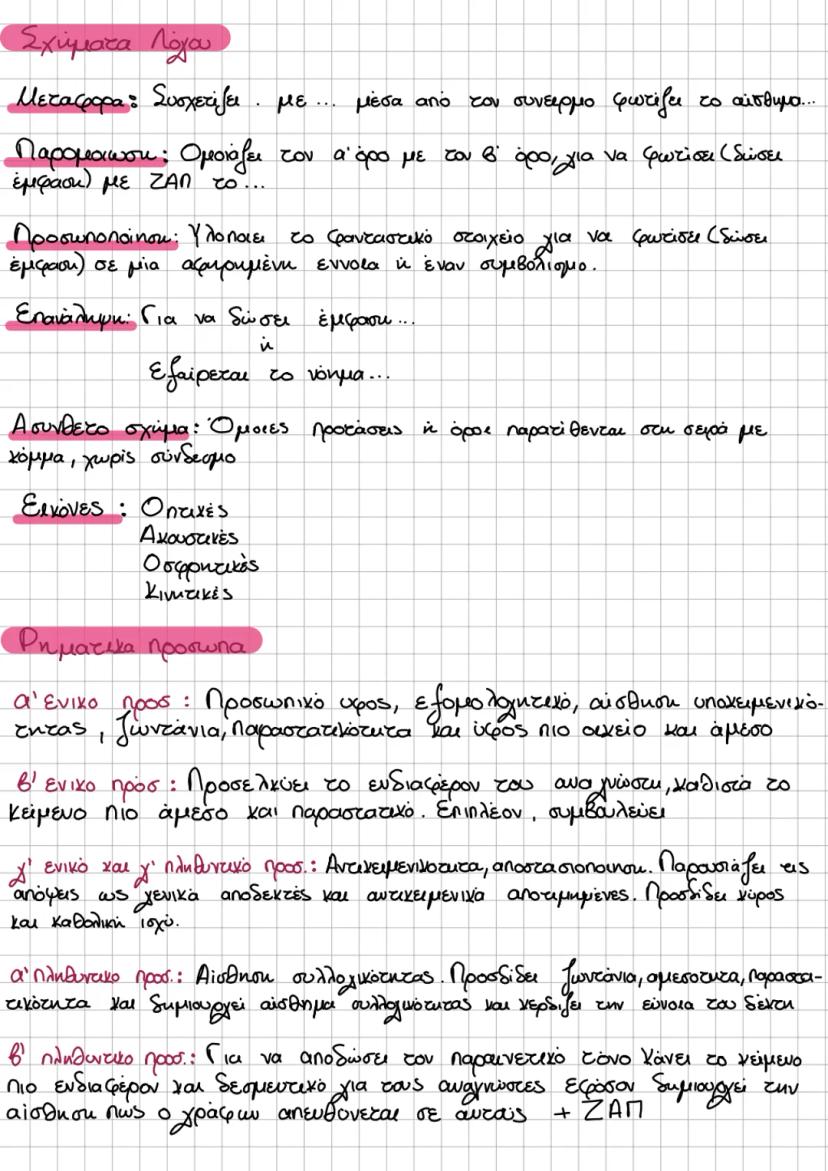 Σχήματα Λόγου
Μεταφορα: Συσχετίζει . με ... μέσα από τον συνειρμο φωτίζει το αίσθημα...
Παρομοιωση: Ομοιάζει τον α' όρο με τον β' όρο, για να φωτίσει (δώσει
έμφαση) με ΖΑΠ το ...
Προσωποποίηση: Υλοποιει το φανταστικό στοιχείο για να φωτίσει (δώσει
έμφαση) σε μία αφηρημένη έννοια ή έναν συμβολισμο.
Επανάληψη: Για να δώσει έμφαση ...
ή
Εξαίρεται το νόημα ...
Ασυνθετο σχήμα: Όμοιες προτάσεις ή όροι παρατίθενται στη σειρά με
κόμμα, χωρίς σύνδεσμο
Εικόνες : Οπτικές
Ακουστικές
Οσφρητικές
Κινητικές
Ρηματικα προσωπα
α' ενικο προσ : Προσωπικό υφος, εξομολογητικό, αίσθηση υποκειμενικό-
τητας , ζωντάνια, παραστατικότητα και ύφος πιο οικείο και άμεσο
β' ενικο πρόσ : Προσελκύει το ενδιαφέρον του αναγνώστη, καθιστά το
κείμενο πιο άμεσο και παραστατικό. Επιπλέον, συμβουλεύει
γ' ενικό και γ' πληθυντικό προσ.: Αντικειμενικότητα, αποστασιοποιηση. Παρουσιάζει τις
απόψεις ως γενικά αποδεκτές και αντικειμενικά αποτιμημένες. Προσδίδει κύρος
και καθολική ισχύ.
α' πληθυντικο προσ.: Αίσθηση συλλογικότητας. Προσδίδει ζωντάνια, αμεσοτητα, παραστα-
τικότητα και δημιουργεί αίσθημα συλλογικότητας και κερδίζει την εύνοια του δέκτη
β' πληθυντικο προσ.: Για να αποδώσει τον παραινετικό τόνο κάνει το κείμενο
πιο ενδιαφέρον και δεσμευτικό για τους αναγνώστες εφόσον δημιουργεί την
αίσθηση πως ο γράφων απευθύνεται σε αυτούς + ΖΑΠ